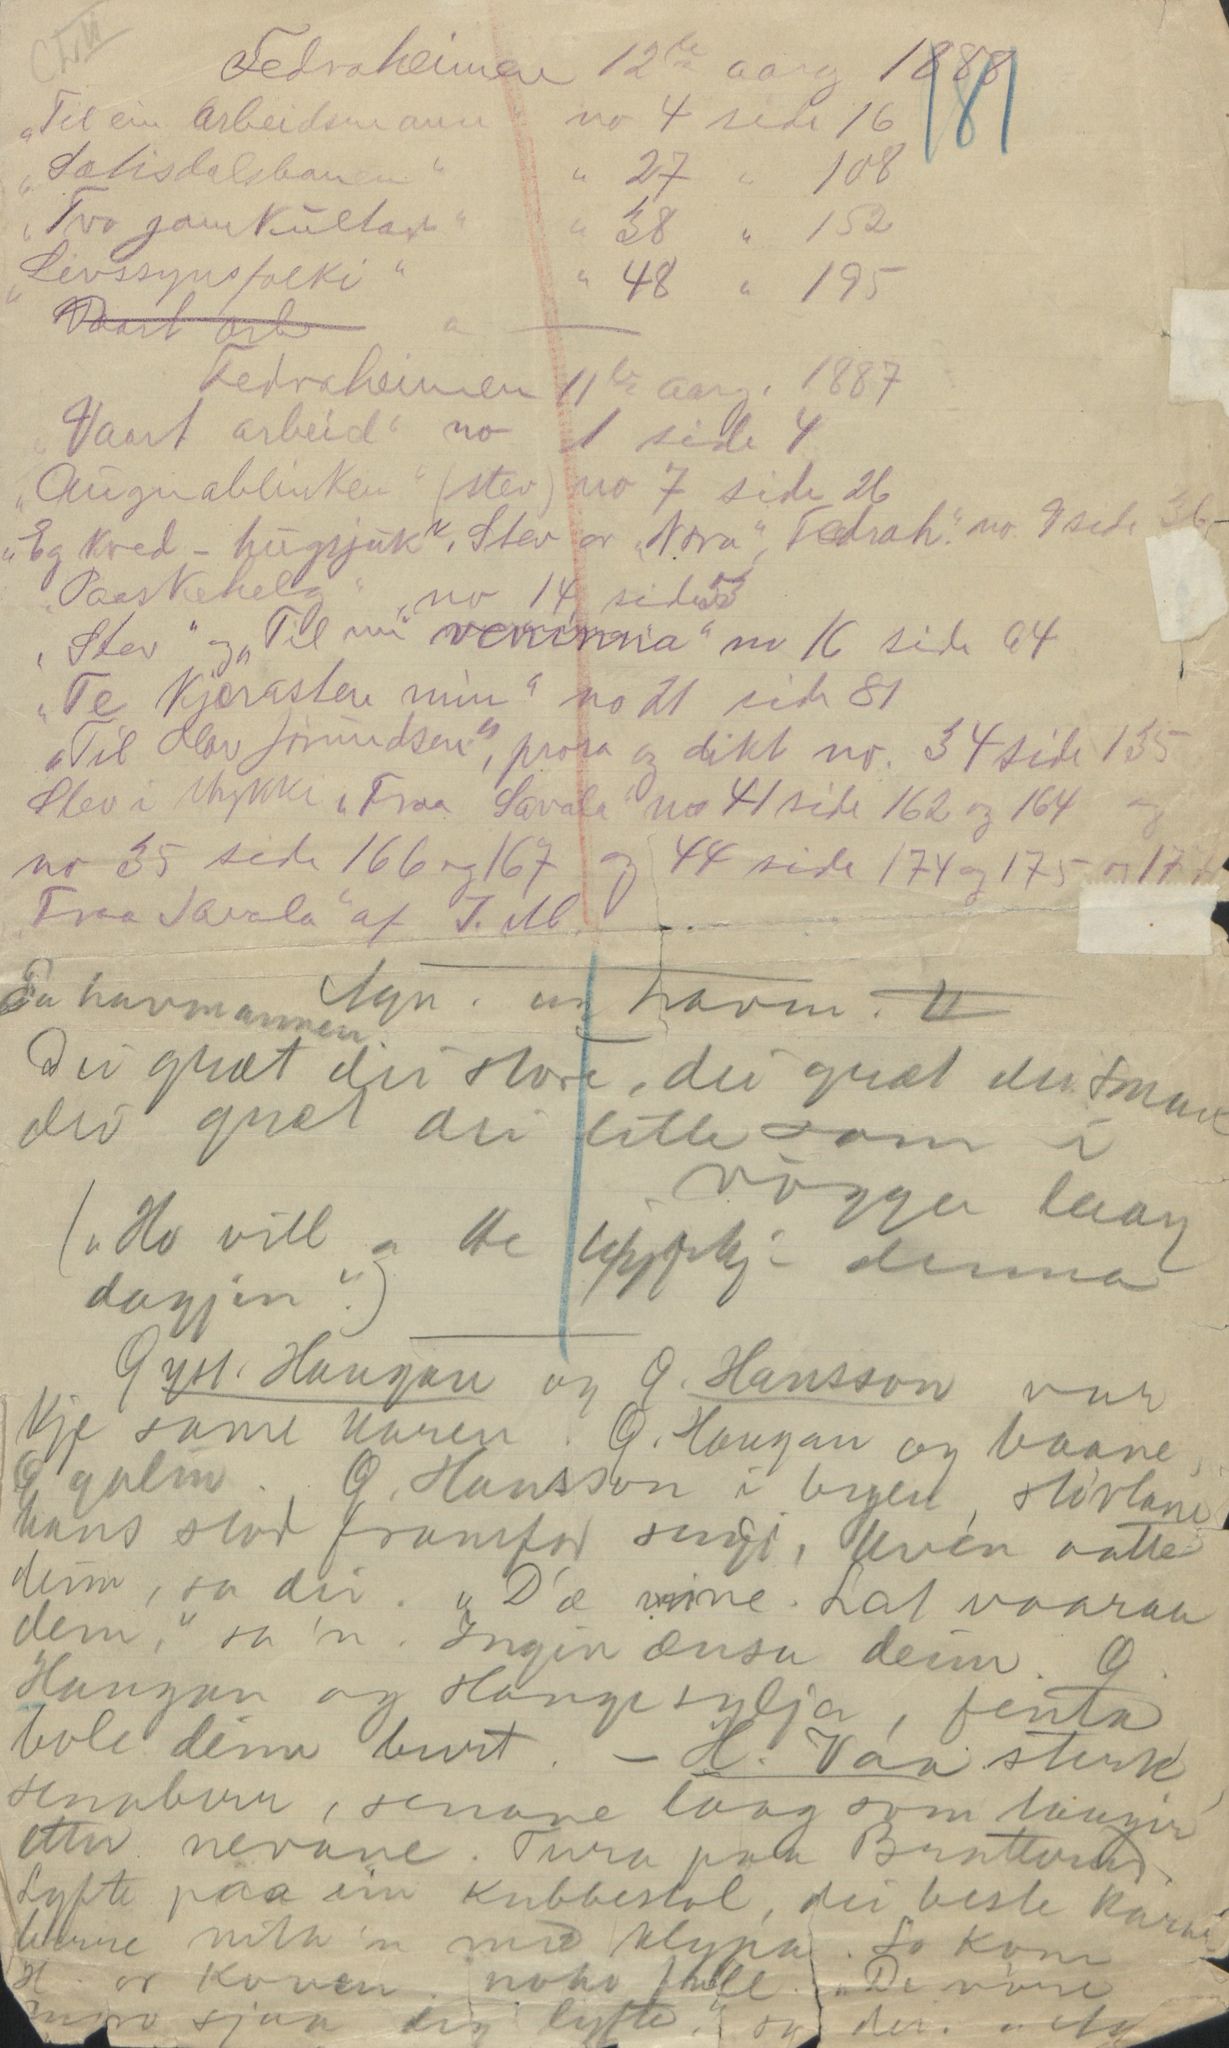 Fedraheimen 12te aarg 1888
181
„Til ein arbeidsmann no 4 side 16
„Sætisdalsbanen“ „ 27 „ 108
„Tvo gamkultar“ „ 38 „ 152
„Livssynsfolki“ „ 48 „ 195
Vaart arb „
Fedraheimen 11te aarg. 1887
„Vaart arbeid“ no 1 side 4
„Augnablinken“ (stev) no 7 side 26
„Eg kved – hugsjuk“, Stev av „Nora“, Fedrah. no. 9 side 36
„Paaskehelg“ no 14 side 53
„Stev“ og „Til mi veninna“ no 16 side 64
„Te Kjærasten min“ no 21 side 81
„Til Olav Jörundsen“, prosa og dikt no. 34 side 135
Stev i stykki „Fraa Savala“ no 41 side 162 og 164 og
no 35 side 166 og 167 og 44 side 174 og 175 og
„Fraa Savala“ af J. M.
Sogn. um havm.
Pa havmannen.
Dei græt dei store, dei græt dei smaae
dei græt dei litle som i
vögga laag
(„Ho vill a te kyrkj denna
dagjin“.)
G yst. Haugan og G. Hansson var
kje same karen. G. Haugan og baane,
G galin. G. Hansson i byen, stövlane
hans stod framfor sengi, kven aatte
deim, sa dei. „D'æ mine. Lat vaaraa
dem,“ sa 'n. Ingin ænsa deim. G.
Haugan og Haugesylja, fenta
bole deim burt. – H. Vaa sterk
senaberr, senane laag som taugir
etter nevane. Tura paa Brattand.
Lyfte paa ein kubbestol, dei beste karane
berre nita 'n med klypa. So kom
H. or koven. noko full. „De vöre
moro sjaa deg lyfte,“ sa dei.